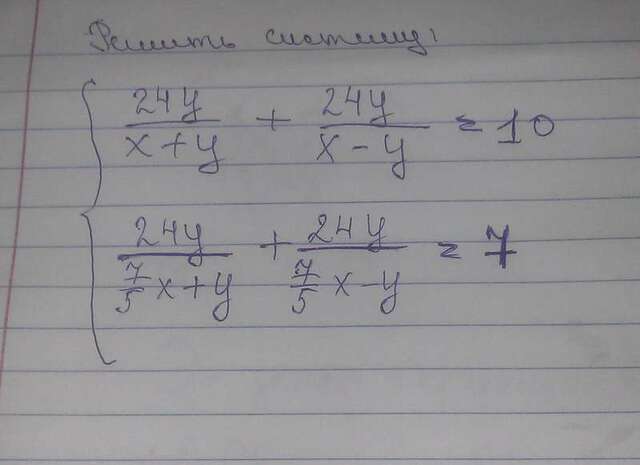 Решить систему:
24y/(x+y) + 24y/(x-y) = 10
24y/(7/5 x+y) + 24y/(7/5 x-y) = 7